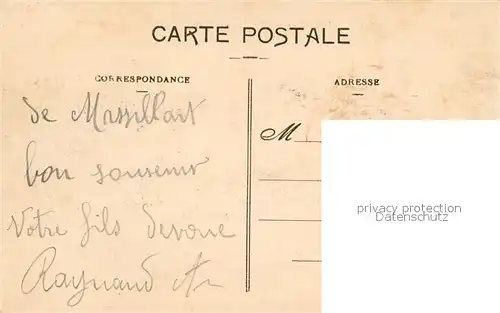 CARTE POSTALE
CORRESPONDANCE
ADRESSE
de
bon souvenir
Votre fils devoué
Raynaud
M
privacy protection
Datenschutz